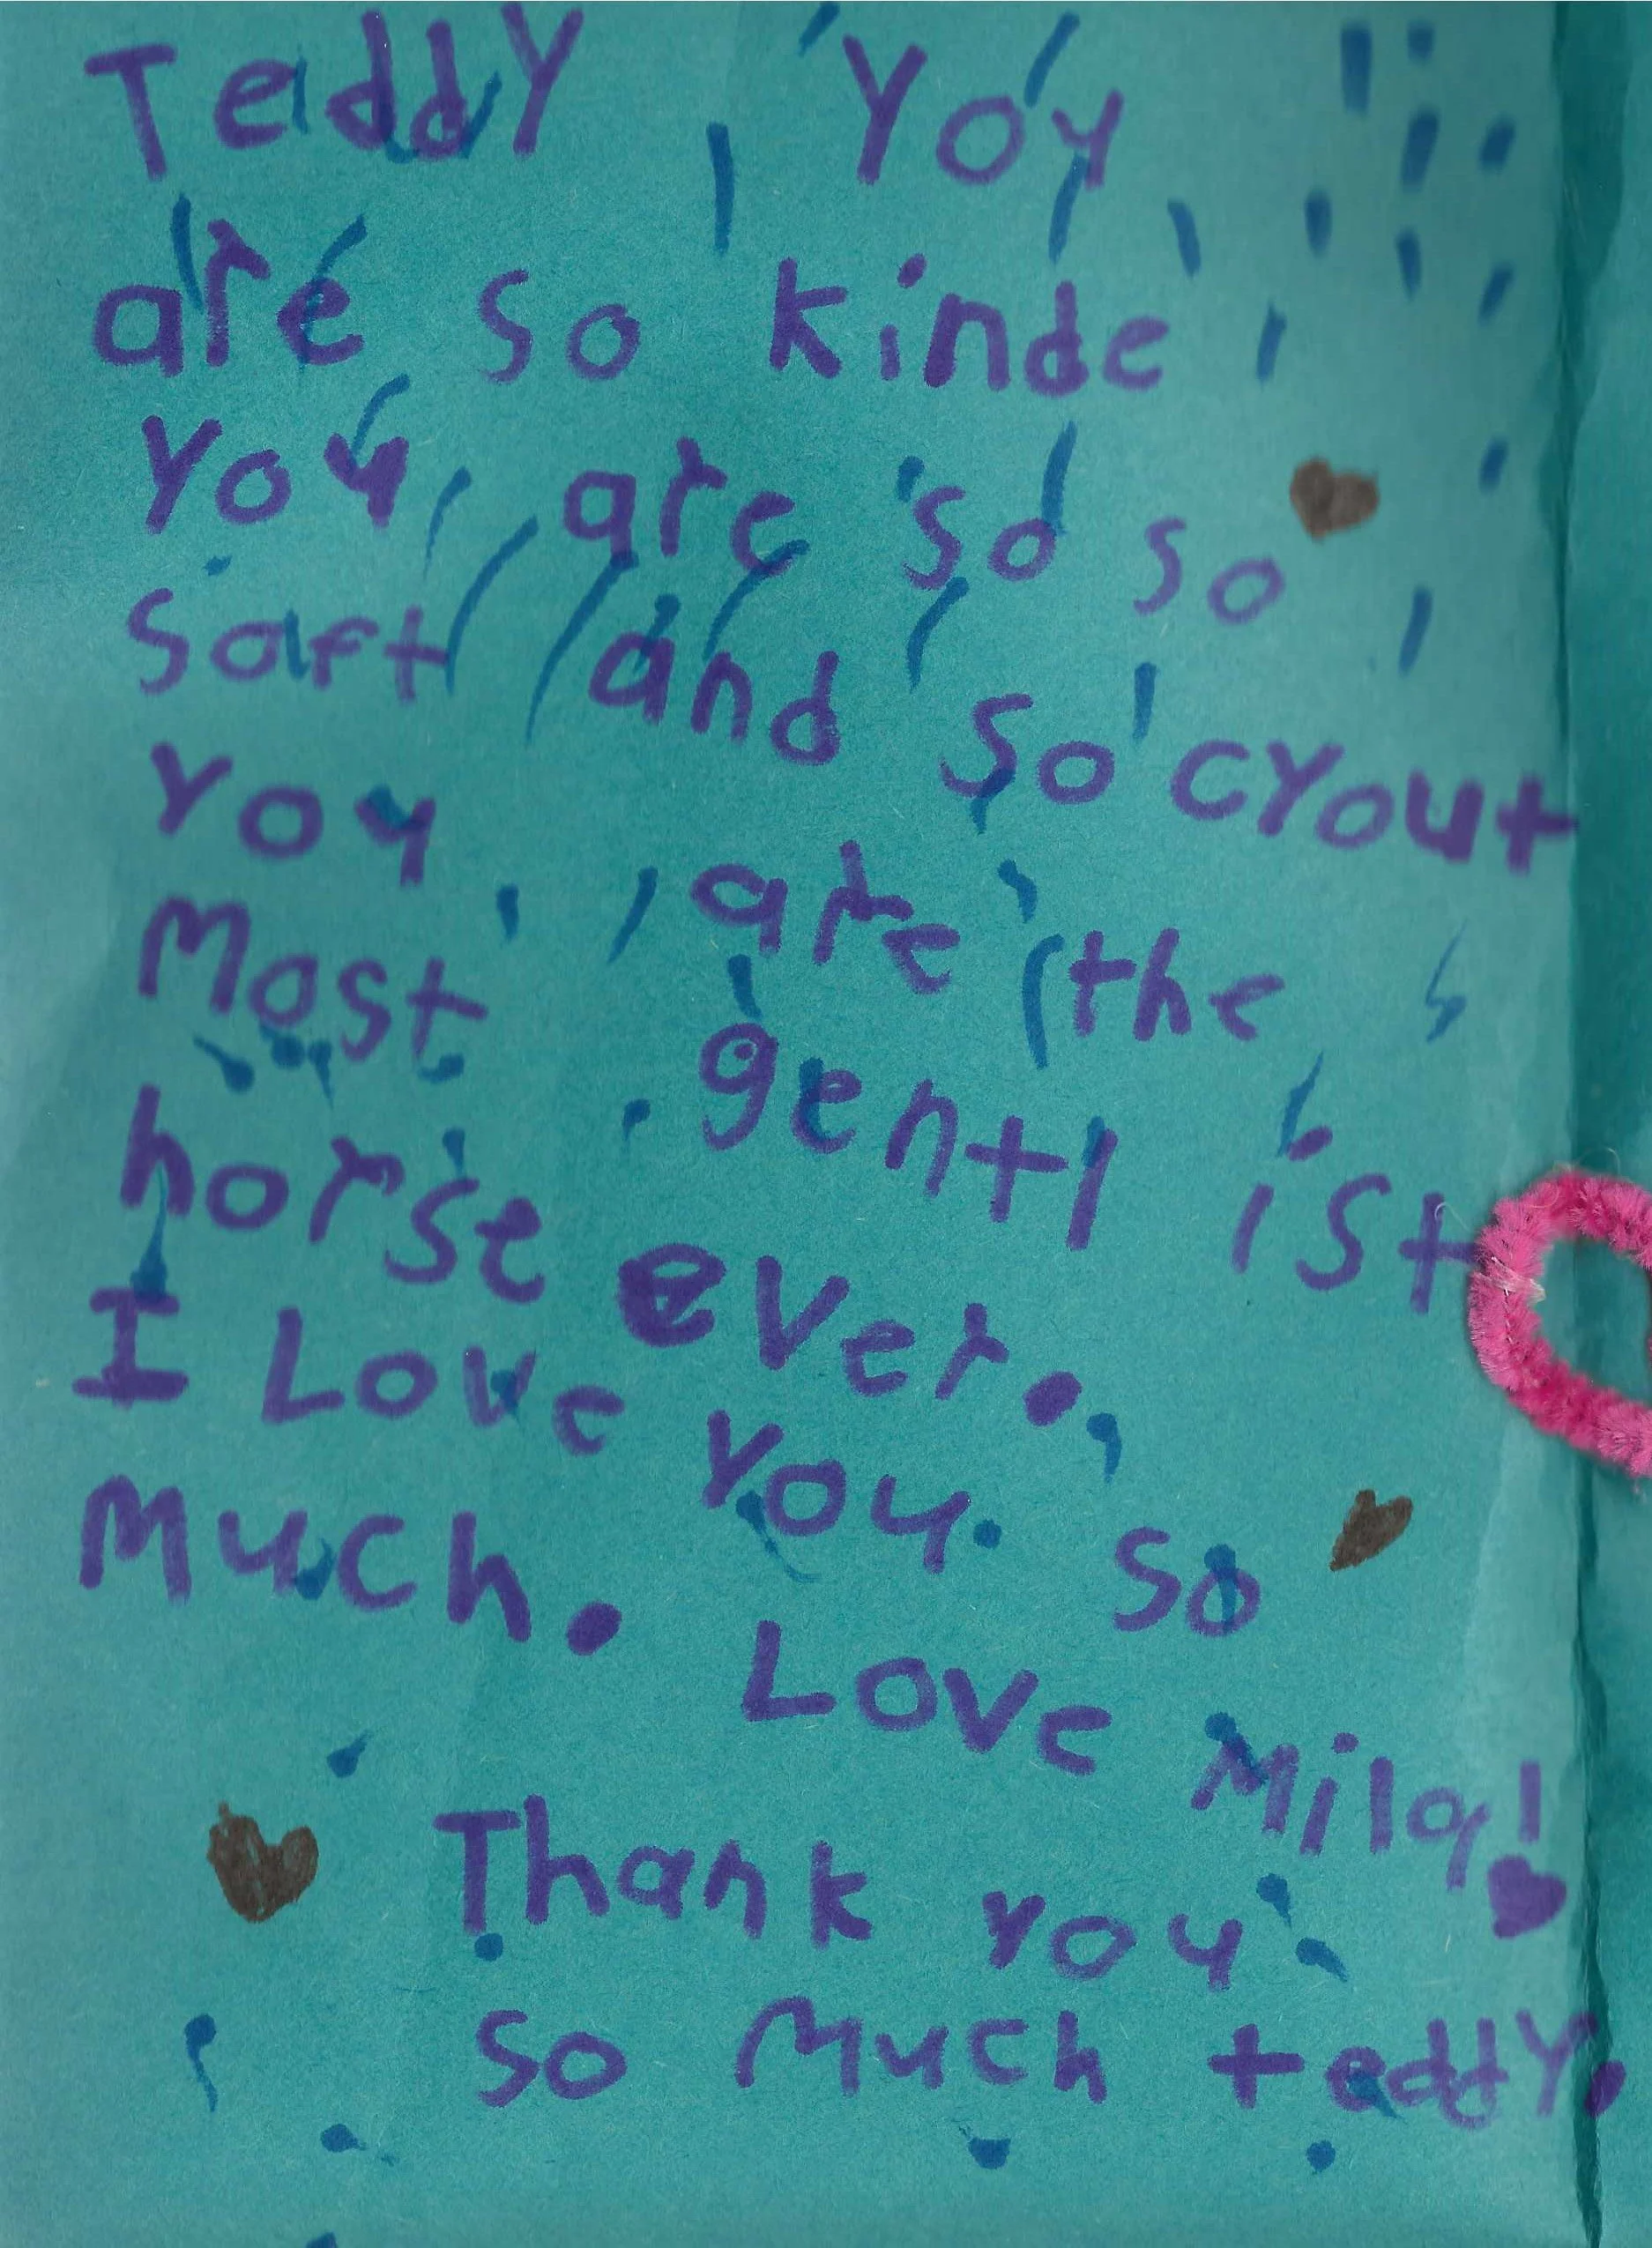 Teddy You
are so kinde
You are so so
Saft and so cyout
You are the
Most gentl ist
horse ever.
I Love You. so
Much.
Love Mila!
Thank you
so Much teddy.